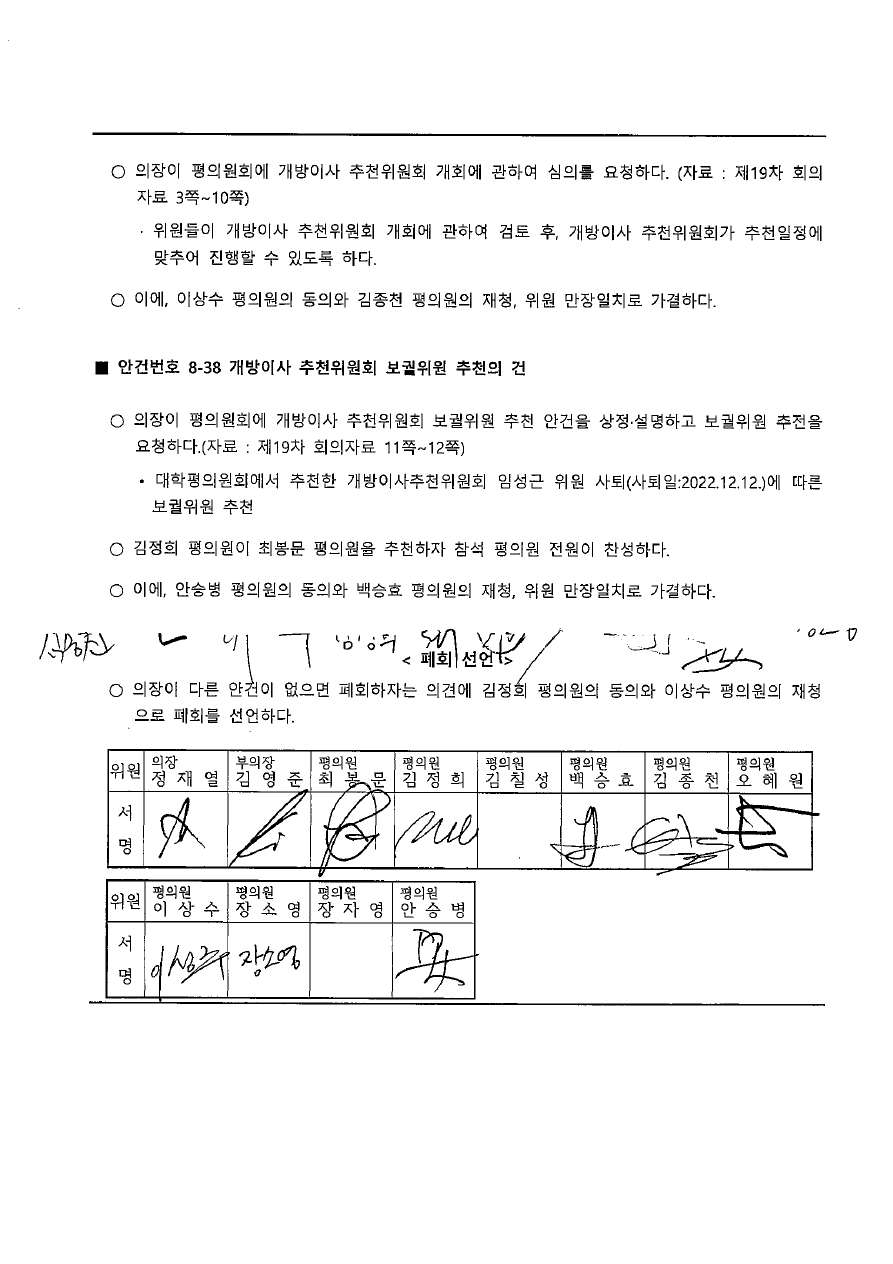 ○ 의장이 평의원회에 개방이사 추천위원회 개회에 관하여 심의를 요청하다. (자료 : 제19차 회의
자료 3쪽~10쪽)
· 위원들이 개방이사 추천위원회 개회에 관하여 검토 후, 개방이사 추천위원회가 추천일정에
맞추어 진행할 수 있도록 하다.
○ 이에, 이상수 평의원의 동의와 김종천 평의원의 재청, 위원 만장일치로 가결하다.
■ 안건번호 8-38 개방이사 추천위원회 보궐위원 추천의 건
○ 의장이 평의원회에 개방이사 추천위원회 보궐위원 추천 안건을 상정·설명하고 보궐위원 추전을
요청하다.(자료 : 제19차 회의자료 11쪽~12쪽)
• 대학평의원회에서 추천한 개방이사추천위원회 임성근 위원 사퇴(사퇴일:2022.12.12.)에 따른
보궐위원 추천
○ 김정희 평의원이 최봉문 평의원을 추천하자 참석 평의원 전원이 찬성하다.
○ 이에, 안승병 평의원의 동의와 백승효 평의원의 재청, 위원 만장일치로 가결하다.
< 폐회 선언 >
○ 의장이 다른 안건이 없으면 폐회하자는 의견에 김정희 평의원의 동의와 이상수 평의원의 재청
으로 폐회를 선언하다.
위원 의장 부의장 평의원 평의원 평의원 평의원 평의원 평의원
정재열 김영준 최봉문 김정희 김칠성 백승효 김종천 오혜원
서
명
위원 평의원 평의원 평의원 평의원
이상수 장소영 장자영 안승병
서
명
이상수 장소영